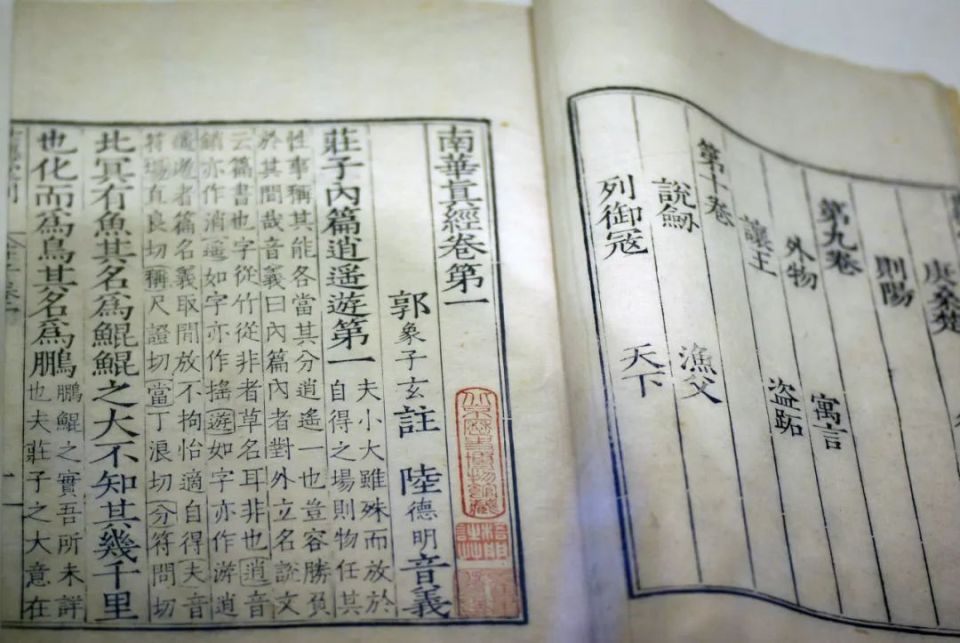 庚桒楚
則陽
第九卷
外物 寓言
讓王 盜跖
第十卷
說劎 漁父
列御冦 天下
南華眞經卷第一
北京歷史博物館藏
郭象子玄註 陸德明音義
莊子內篇逍遙遊第一 夫小大雖殊而放於
自得之場則物任其
性事稱其能各當其分逍遙一也豈容勝負
於其間哉音義曰內篇內者對外立名說文
云篇書也字從竹從艸者草名耳非也逍音
銷亦作消遙如字亦作搖遊如字亦作游逍
遙遊者篇名義取閒放不拘怡適自得夫音
符場直良切稱尺證切當丁浪切分符問切
北冥有魚其名爲鯤鯤之大不知其幾千里
也化而爲鳥其名爲鵬 鵬鯤之實吾所未詳
也夫莊子之大意在